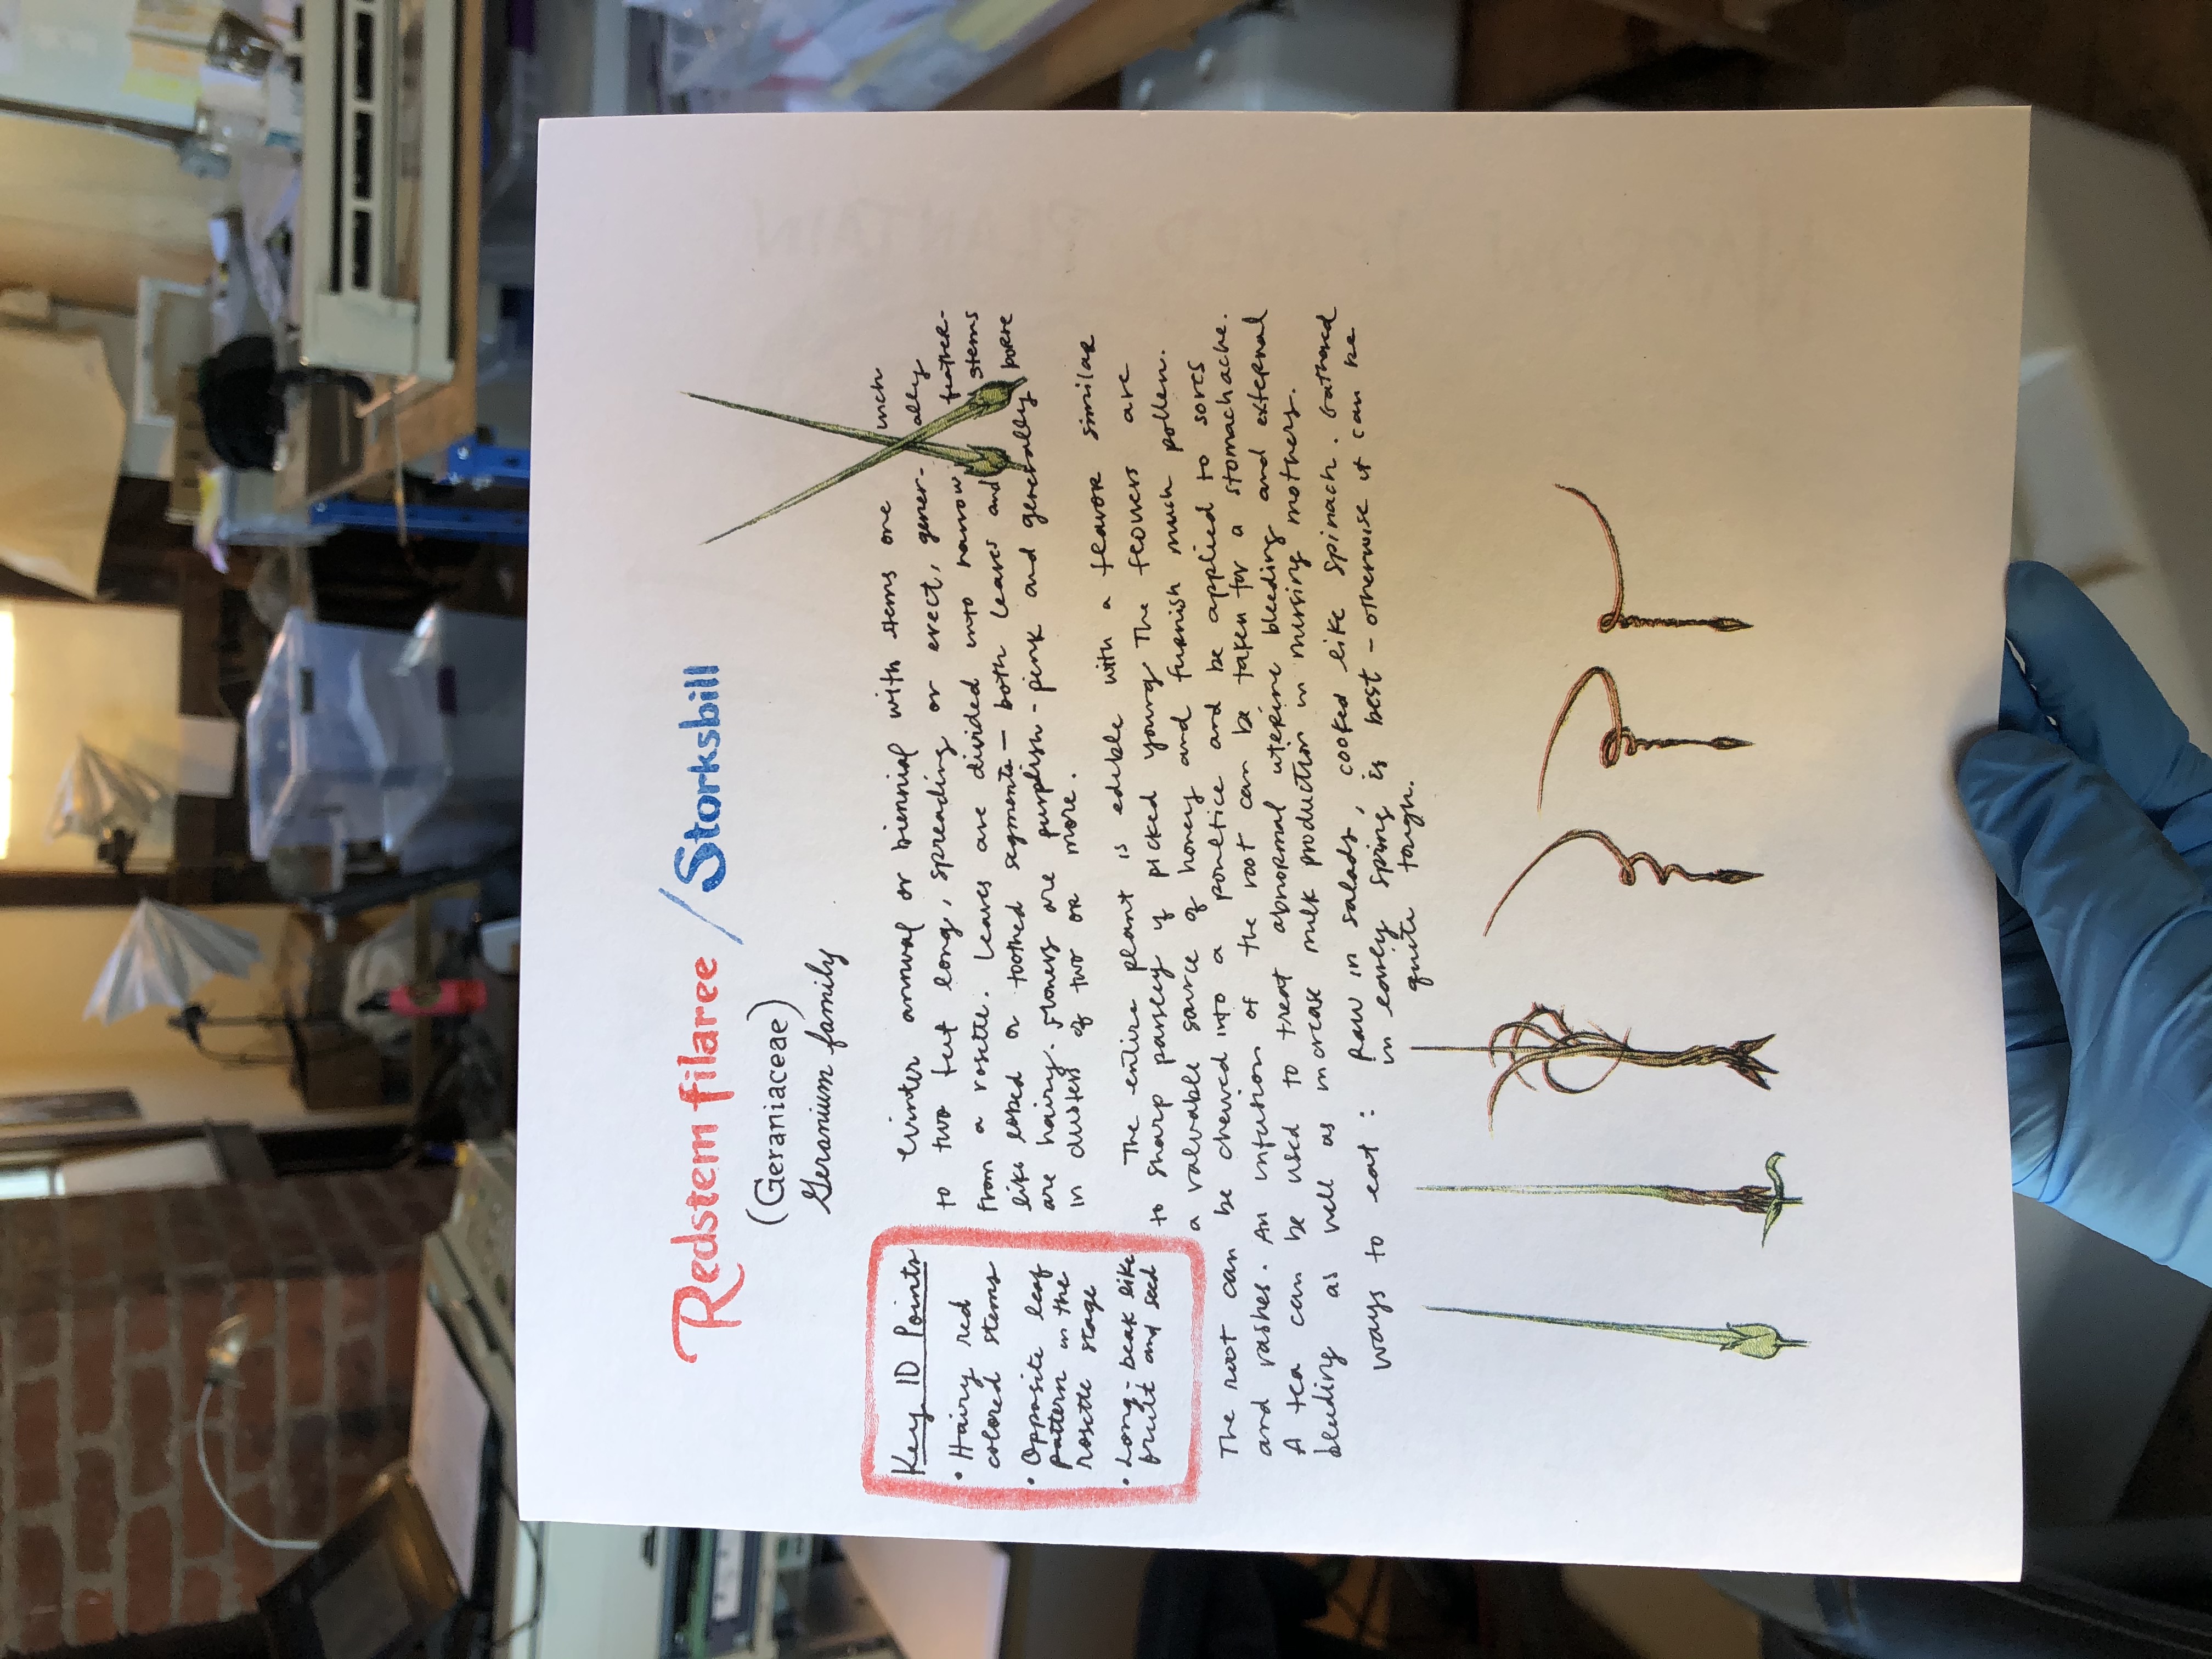 Redstem filaree / Storksbill
(Geraniaceae)
Geranium family
Key ID Points
• Hairy red
colored stems
• Opposite leaf
pattern in the
rosette stage
• Long-beak like
fruit and seed
Winter annual or biennial with stems one inch
to two feet long, spreading or erect, gener-ally
from a rosette. Leaves are divided into narrow feather-
like lobed or toothed segments — both leaves and stems
are hairy. Flowers are purplish-pink and generally borne
in clusters of two or more.
The entire plant is edible with a flavor similar
to sharp parsley if picked young. The flowers are
a valuable source of honey and furnish much pollen.
The root can be chewed into a poultice and be applied to sores
and rashes. An infusion of the root can be taken for a stomachache.
A tea can be used to treat abnormal uterine bleeding and external
bleeding as well as increase milk production in nursing mothers.
Ways to eat: Raw in salads, cooked like spinach. Gathered
in early spring, is best - otherwise it can be
quite tough.
PLANTAIN